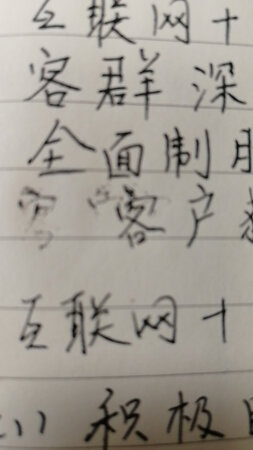 互联网+
客群深
全面制
客户
互联网+
(1)积极